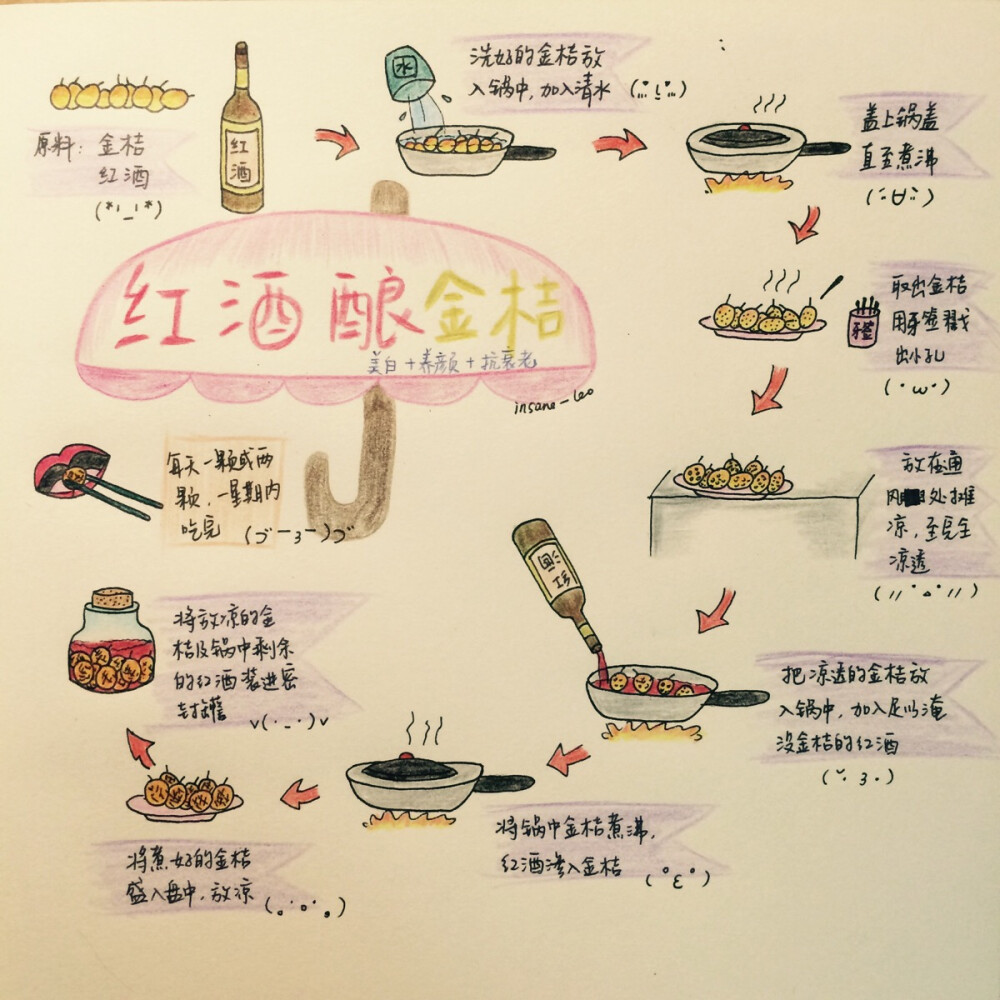 原料：金桔
红酒
(*'_'*)
红酒
水
洗好的金桔放
入锅中，加入清水
盖上锅盖
直至煮沸
取出金桔
用牙签戳
出小孔
(·ω·)
牙签
红酒酿金桔
美白+养颜+抗衰老
insane-leo
放在通
风处摊
凉，至完全
凉透
红酒
把凉透的金桔放
入锅中，加入足以淹
没金桔的红酒
(˘. 3 .)
将锅中金桔煮沸，
红酒渗入金桔
(°ε°)
将煮好的金桔
盛入盘中，放凉
将放凉的金
桔及锅中剩余
的红酒装进密
封罐
v(·_·)v
每天一颗或两
颗，一星期内
吃完 (づ￣3￣)づ